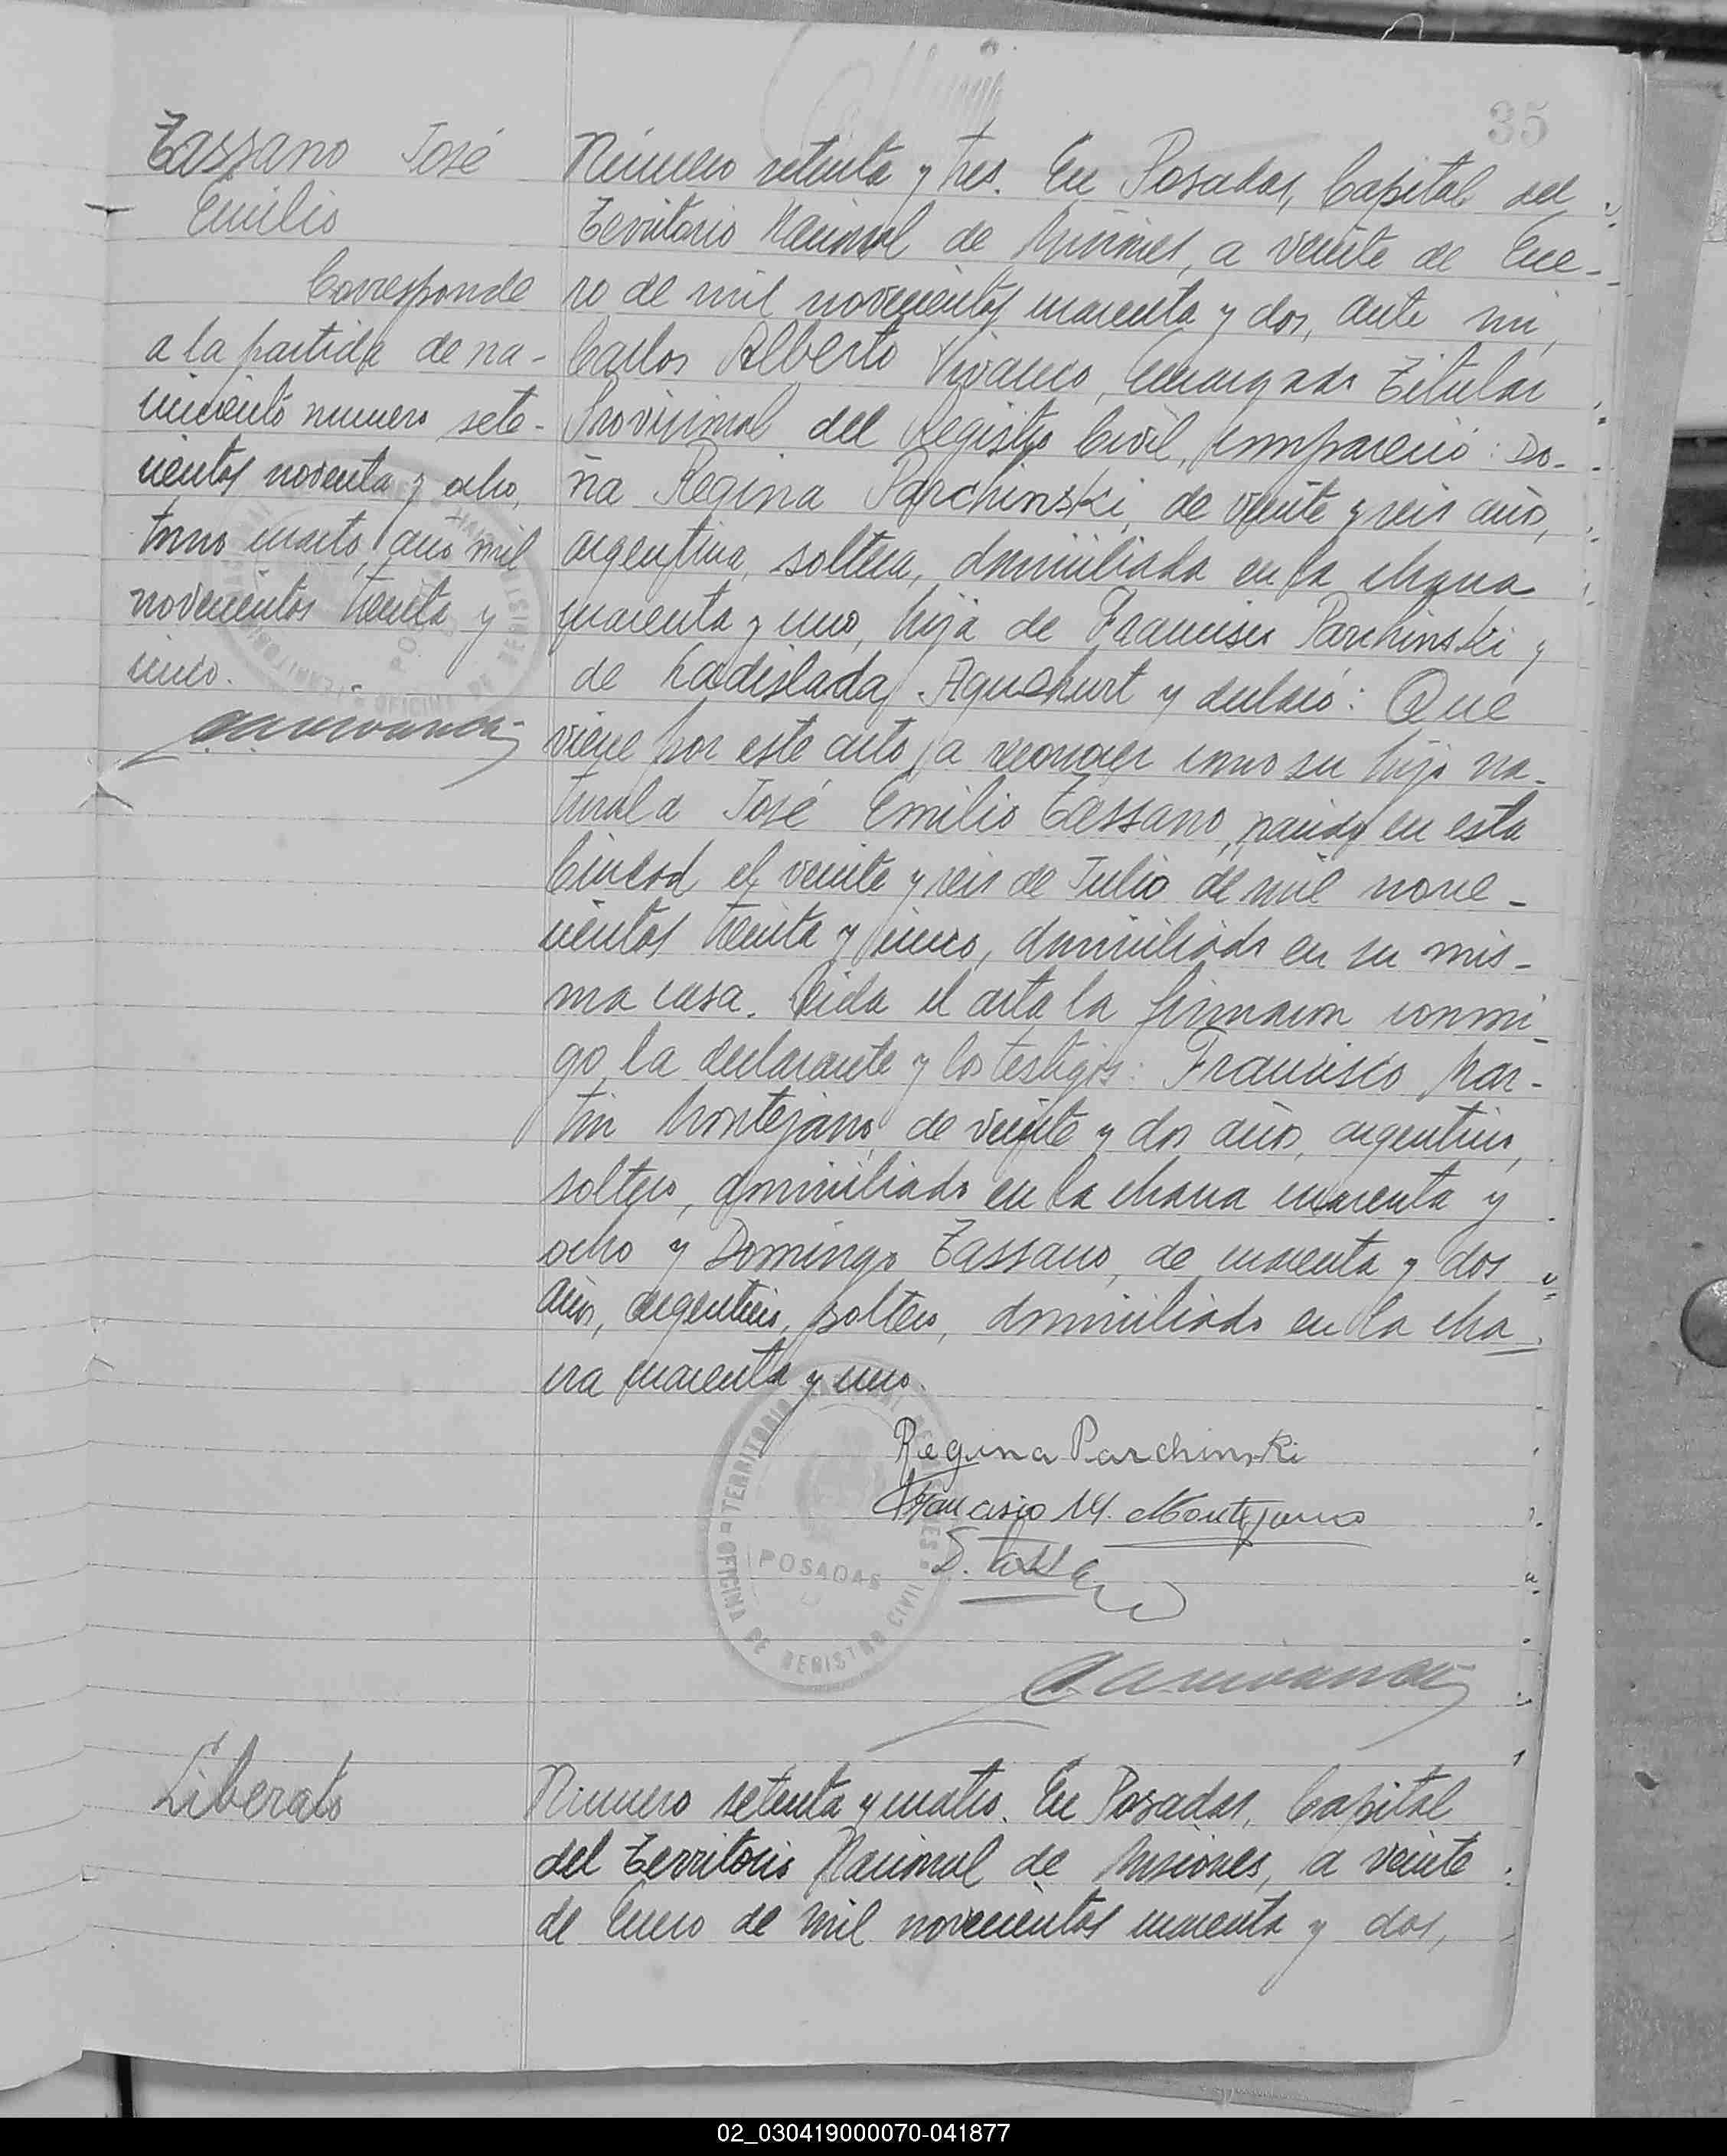 35
Tassano José
Emilio
Corresponde
a la partida de na-
cimiento numero sete-
cientos noventa y ocho,
tomo cuarto, año mil
novecientos treinta y
cinco.
Número setenta y tres. En Posadas, Capital del
Territorio Nacional de Misiones, a veinte de Ene-
ro de mil novecientos cuarenta y dos, ante mi,
Carlos Alberto Vivanco, Encargado Titular
Provisional del Registro Civil, compareció: Do-
ña Regina Parchinski, de veinte y seis años,
argentina, soltera, domiciliada en la chacra
cuarenta y uno, hija de Francisco Parchinski y
de Ladislada Aquehurt y declaró: Que
viene por este acto a reconocer como su hijo na-
tural a José Emilio Tassano, nacido en esta
Ciudad el veinte y seis de Julio de mil nove-
cientos treinta y cinco, domiciliado en su mis-
ma casa. Leida el acta la firmaron conmi-
go la declarante y los testigos: Francisco Mar-
tin Montejano de veinte y dos años, argentino,
soltero, domiciliado en la chacra cuarenta y
ocho y Domingo Tassano, de cuarenta y dos
años, argentino, soltero, domiciliado en la cha-
cra cuarenta y uno.
Regina Parchinski
Francisco M. Montejano
D. Tassano
TERRITORIO NACIONAL DE MISIONES
POSADAS
OFICINA DE REGISTRO CIVIL
Liberato
Número setenta y cuatro. En Posadas, Capital
del Territorio Nacional de Misiones, a veinte
de Enero de mil novecientos cuarenta y dos,
02_030419000070-041877